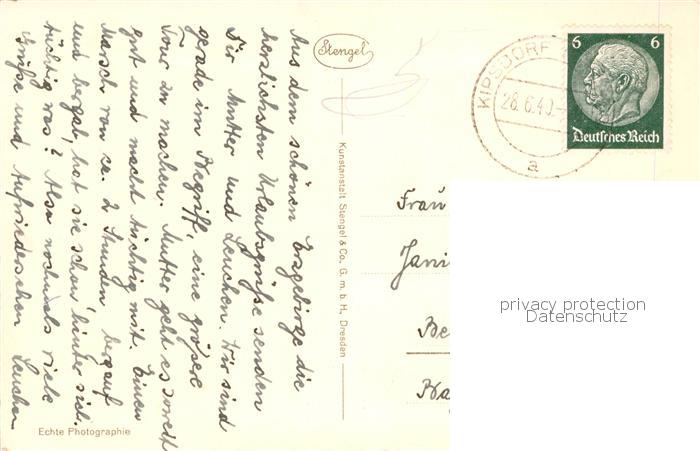 Aus dem schönen Erzgebirge die
herzlichsten Urlaubsgrüße senden
Dir Mutter und Lenchen. Wir sind
gerade im Begriff, eine größere
Tour zu machen. Mutter geht es soweit
gut und macht tüchtig mit. Einen
Marsch von ca. 2 Stunden bergauf
und bergab, hat sie schon hinter sich.
tüchtig was? Also nochmals viele
Grüße und Aufwiedersehen Lenchen
Echte Photographie
Stengel
Kunstanstalt Stengel & Co. G. m. b. H., Dresden
KIPSDORF
28.6.40.
a
6 6
Deutsches Reich
Frau
Jani
Be
Ba
privacy protection
Datenschutz